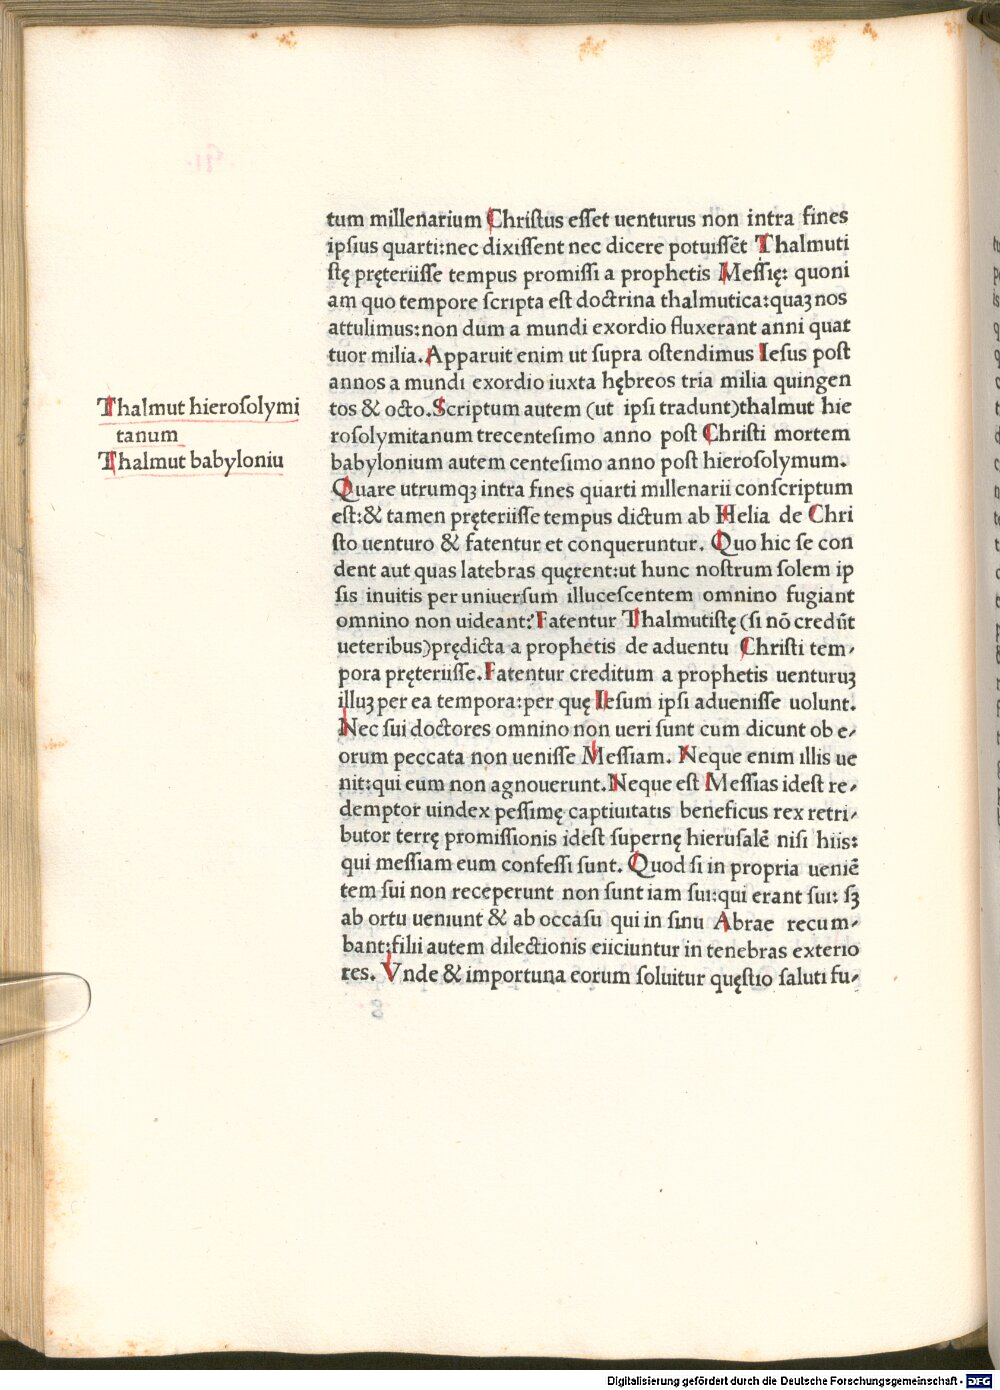 Thalmut hierosolymi
tanum
Thalmut babyloniu
tum millenarium Christus esset uenturus non intra fines
ipsius quarti:nec dixissent nec dicere potuissēt Thalmuti
stę pręteriisse tempus promissi a prophetis Messię: quoni
am quo tempore scripta est doctrina thalmutica:quaꝫ nos
attulimus:non dum a mundi exordio fluxerant anni quat
tuor milia. Apparuit enim ut supra ostendimus Iesus post
annos a mundi exordio iuxta hębreos tria milia quingen
tos & octo. Scriptum autem (ut ipsi tradunt)thalmut hie
rosolymitanum trecentesimo anno post Christi mortem
babylonium autem centesimo anno post hierosolymum.
Quare utrumqꝫ intra fines quarti millenarii conscriptum
est:& tamen pręteriisse tempus dictum ab Helia de Chri
sto uenturo & fatentur et conqueruntur. Quo hic se con
dent aut quas latebras quęrent:ut hunc nostrum solem ip
sis inuitis per uniuersum illucescentem omnino fugiant
omnino non uideant? Fatentur Thalmutistę (si nō credūt
ueteribus)prędicta a prophetis de aduentu Christi tem-
pora pręteriisse. Fatentur creditum a prophetis uenturuꝫ
illuꝫ per ea tempora:per quę Iesum ipsi aduenisse uolunt.
Nec sui doctores omnino non ueri sunt cum dicunt ob e-
orum peccata non uenisse Messiam. Neque enim illis ue
nit:qui eum non agnouerunt. Neque est Messias idest re-
demptor uindex pessimę captiuitatis beneficus rex retri-
butor terrę promissionis idest supernę hierusalē nisi hiis:
qui messiam eum confessi sunt. Quod si in propria ueniē
tem sui non receperunt non sunt iam sui:qui erant sui: sꝫ
ab ortu ueniunt & ab occasu qui in sinu Abrae recum-
bant:filii autem dilectionis eiiciuntur in tenebras exterio
res. Vnde & importuna eorum soluitur quęstio saluti fu-
Digitalisierung gefördert durch die Deutsche Forschungsgemeinschaft - DFG